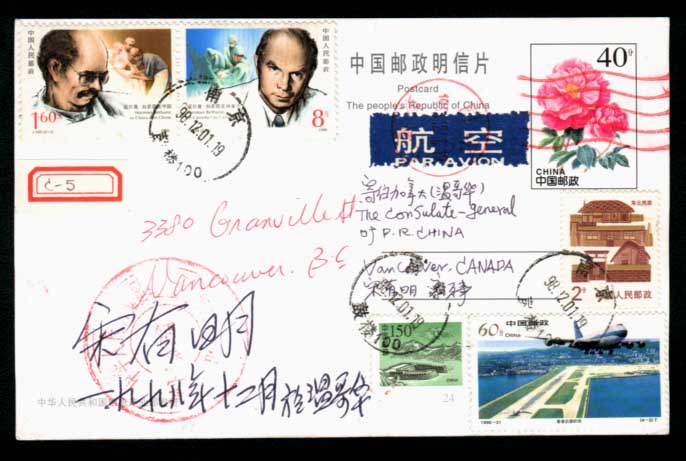 中国人民邮政
中国人民邮政
1.60元
8分
中国邮政明信片
Postcard
The people's Republic of China
40分
CHINA
中国邮政
航空
PAR AVION
南京
98.12.01.19
鼓楼100
C-5
寄往加拿大(温哥华)
The Consulate-general
of P.R.CHINA
3380 Granville St
Vancouver. B.C
Vancouver, CANADA
宋有明
东北民居
2元
中国人民邮政
98.12.01.19
鼓楼100
98.12.01.19
150
CHINA
60分
中国邮政
CHINA
宋有明
一九九八年十二月於温哥华
中华人民共和国
24
1996-21
(4-3)T